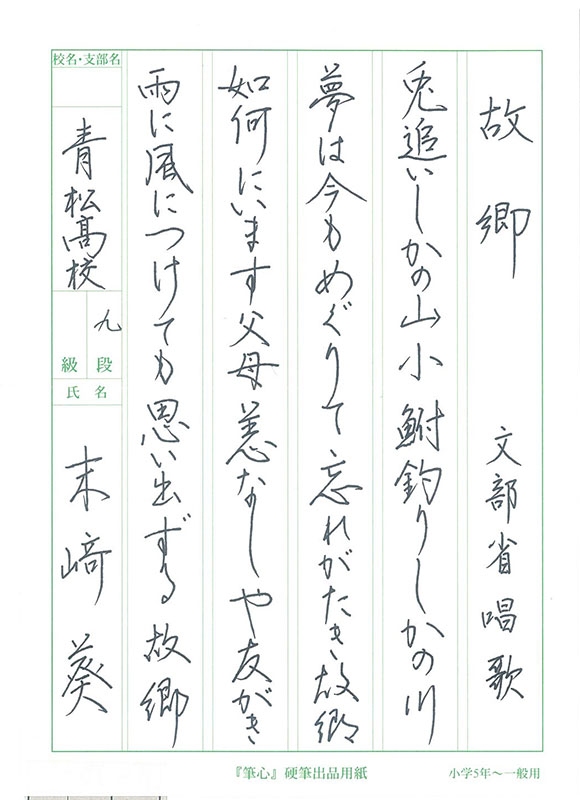 故郷　文部省唱歌
兎追いしかの山小鮒釣りしかの川
夢は今もめぐりて忘れがたき故郷
如何にいます父母恙なしや友がき
雨に風につけても思い出ずる故郷
校名・支部名
青松髙校
九
級 段
氏名
末﨑葵
『筆心』硬筆出品用紙
小学5年〜一般用